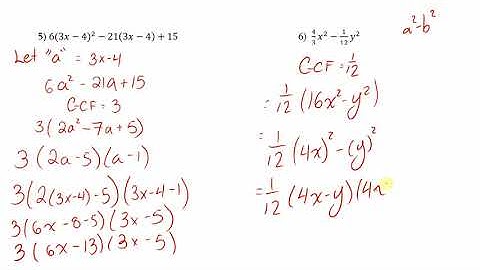 5) 6(3x − 4)² − 21(3x − 4) + 15
Let "a" = 3x-4
6a² - 21a + 15
GCF = 3
3(2a² - 7a + 5)
3(2a-5)(a-1)
3(2(3x-4)-5)(3x-4-1)
3(6x-8-5)(3x-5)
3(6x-13)(3x-5)
6) 4/3 x² − 1/12 y²
a² - b²
GCF = 1/12
= 1/12 (16x² - y²)
= 1/12 (4x)² - (y)²
= 1/12 (4x-y)(4x